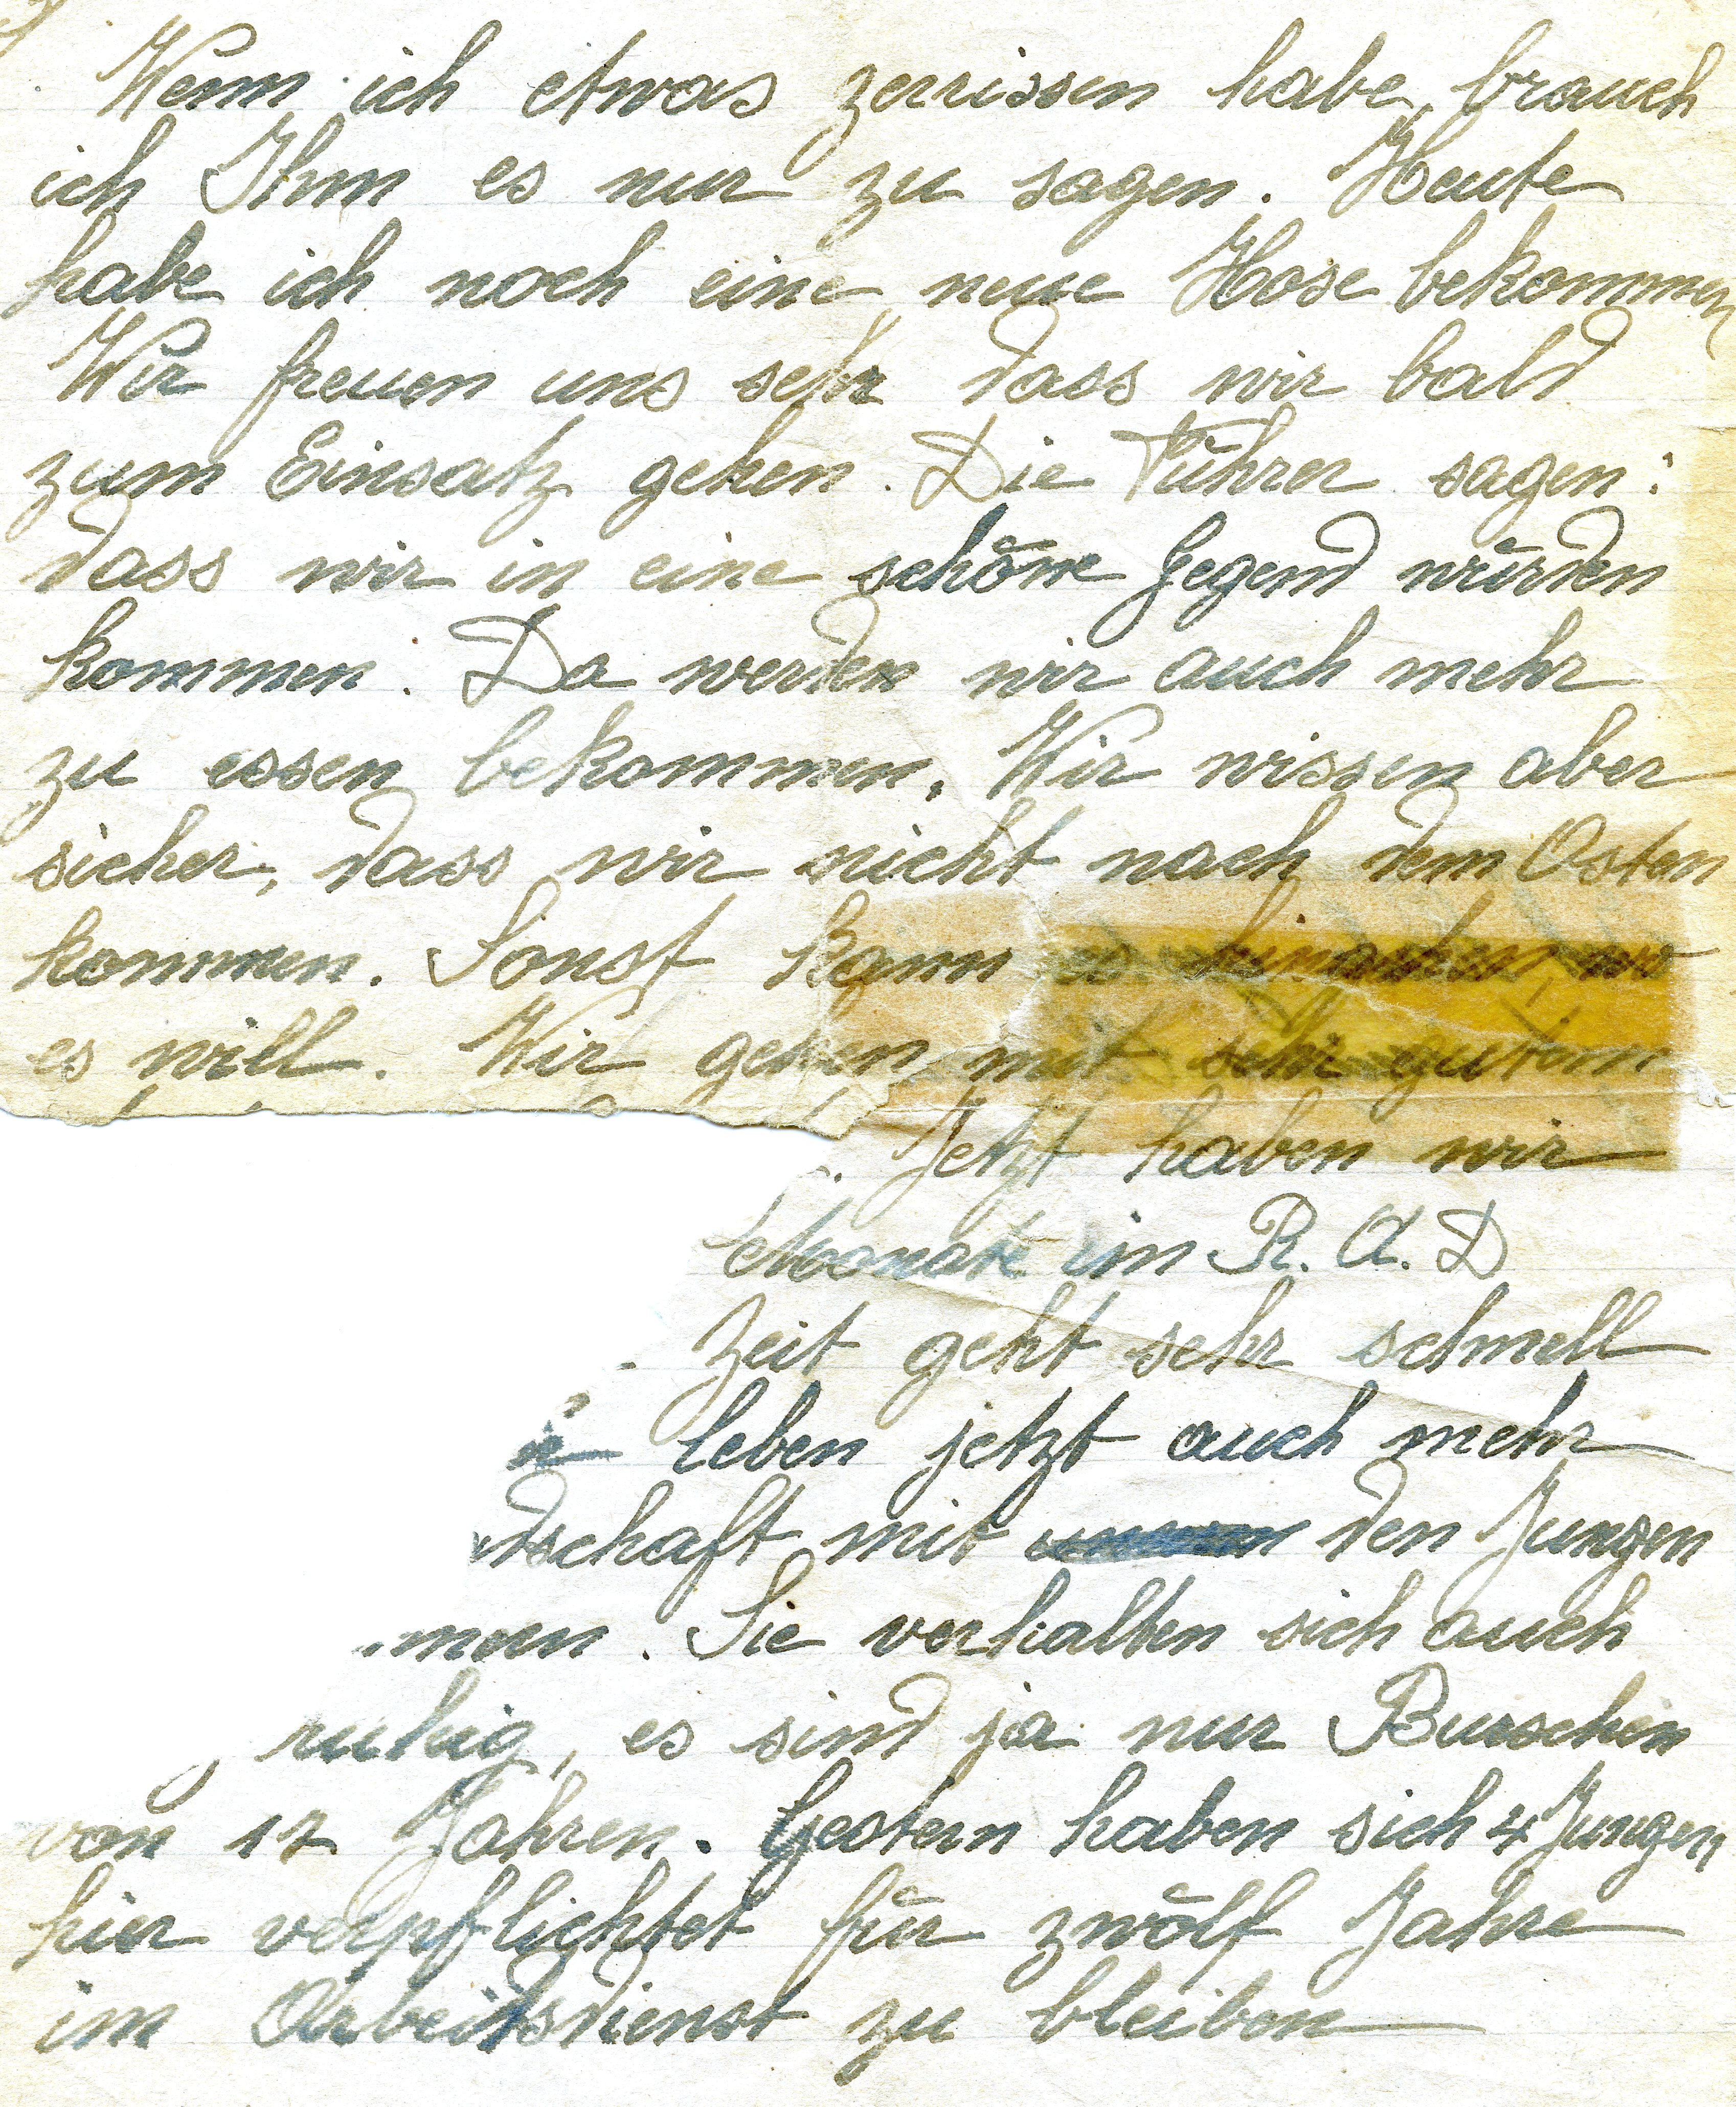 Wenn ich etwas zerrissen habe, brauch
ich Ihm es nur zu sagen. Heute
habe ich noch eine neue Hose bekommen
Wir freuen uns sehr dass wir bald
zum Einsatz gehen. Die Führer sagen:
dass wir in eine schöne Gegend würden
kommen. Da werden wir auch mehr
zu essen bekommen. Wir wissen aber
sicher, dass wir nicht nach dem Osten
kommen. Sonst kann es hinachen wo
es will. Wir gehen mit sehr gutem
. Jetzt haben wir
Monate im R. A. D
Zeit geht sehr schnell
leben jetzt auch mehr
dschaft mit den Jungen
mmen. Sie verhalten sich auch
ruhig, es sind ja nur Burschen
von 17 Jahren. Gestern haben sich 4 Jungen
hier verpflichtet für zwölf Jahre
im Arbeitsdienst zu bleiben